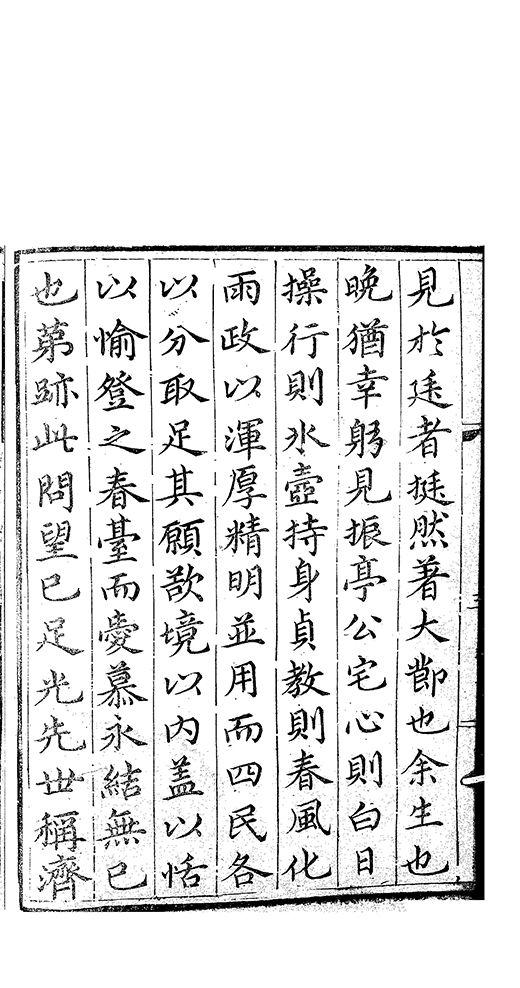 見於廷者挺然著大節也余生也
晚猶幸躬見振亭公宅心則白日
操行則氷壺持身貞教則春風化
雨政以渾厚精明並用而四民各
以分取足其願歆境以內盖以恬
以愉登之春臺而愛慕永結無已
也苐跡此問望已足光先世稱濟